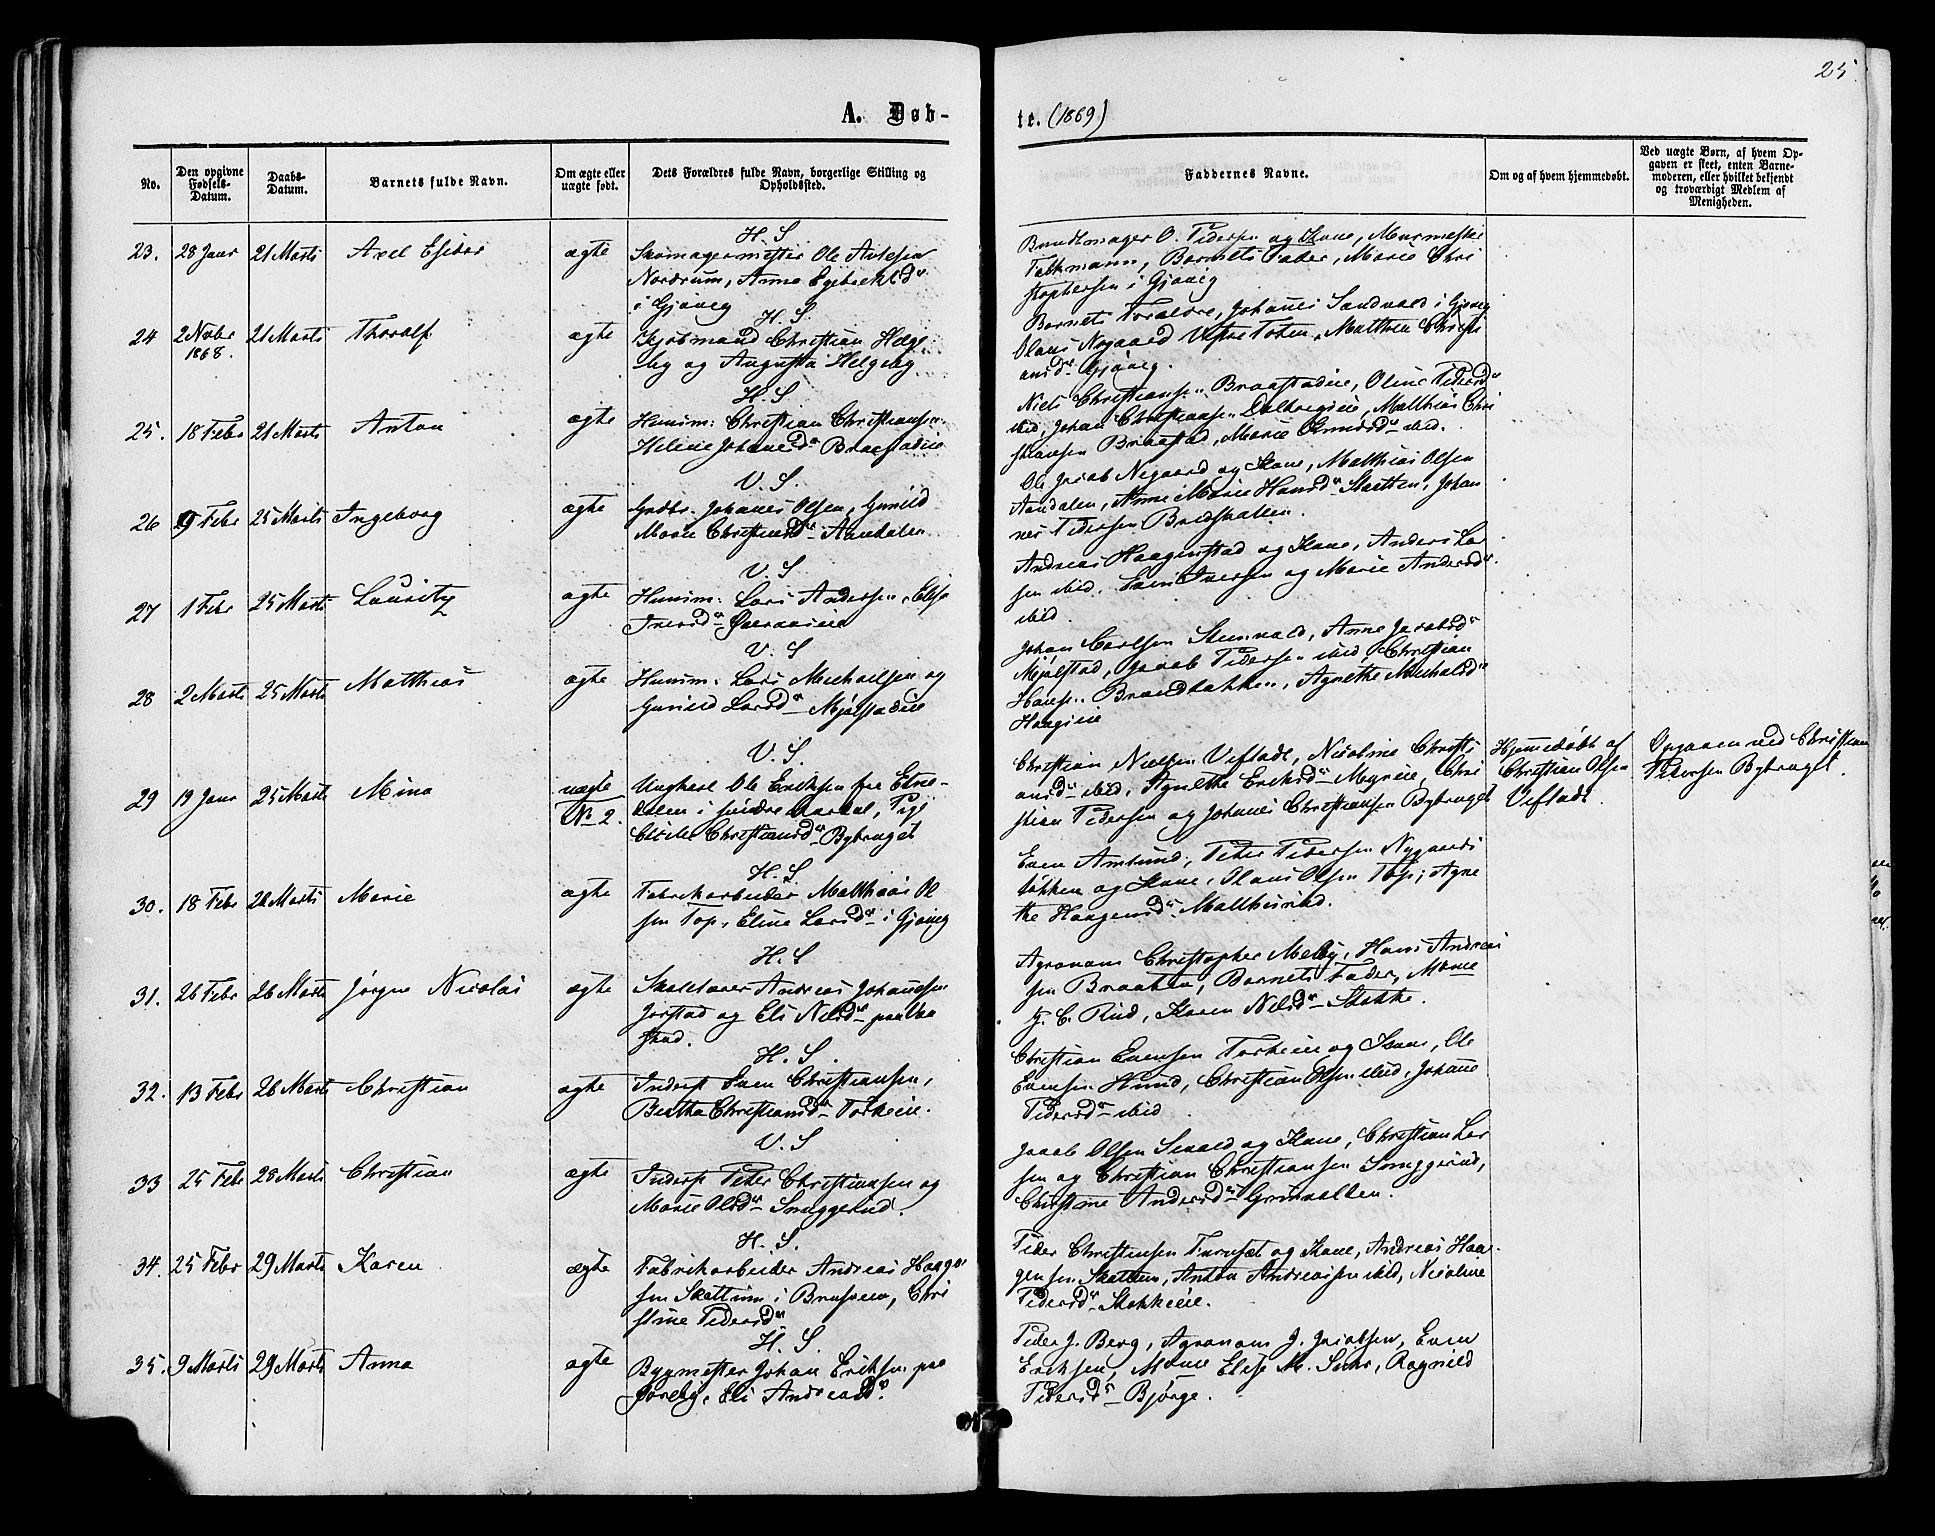 25
A. Døb-
te. (1869)
No.
Den opgivne Fødsels-Datum.
Daabs-Datum.
Barnets fulde Navn.
Om ægte eller uægte født.
Dets Forældres fulde Navn, borgerlige Stilling og Opholdssted.
Faddernes Navne.
Om og af hvem hjemmedøbt.
Ved uægte Børn, af hvem Opgaven er skeet, enten Barnemoderen, eller hvilket bekjendt og troværdigt Medlem af Menigheden.
H. S
23. 28 Janr 21 Marts Axel ægte Skomagermester Ole
Nordrum, Anne
i Gjøvig
Bundtmager O. Pedersen og Kone, Murmester
Falkmann, Barnets Fader, Marie Chri
stophersen i Gjøvig
H. S.
24 2 Novbr 1868. 21 Marts Thoralf ægte Kjøbmand Christian Helge
by og Augusta Helgeby
Barnets Forældre, Johannes Sandvold i Gjøvig
Olaus Nygaard Vestre Toten, Matthea Christi
ansdr Gjøvig.
H. S
25. 18 Febr 21 Marts Anton ægte Husm: Christian Christiansen
Helene Johannesdr Braastadeie
Niels Christiansen Braastadeie, Oline Pedersdr
ibid, Johan Christiansen Dalbregeie, Matthias Chri
stiansen Braastad, Marie ibid.
V. S.
26 9 Febr 25 Marts Ingeborg ægte Grdbr. Johannes Olsen, Gunild
Marie Christiansdr Aandalen
Ole Jacob Negaard og Kone, Matthias Olsen
Aandalen, Anne Marie Hansdr Skatten, Johan
nes Pedersen Bredskallen.
V. S
27 1 Febr 25 Marts Lauritz ægte Husm: Lars Andersen, Else
Iversdr
Andreas Haagenstad og Kone, Anders Lar
sen ibid, Iversen og Marie Andersdr
ibid.
V. S
28 2 Marts 25 Marts Matthias ægte Husm: Lars Michaelsen og
Gunild Larsdr Mjølstadeie
Johan Carlsen Steinvald, Anne Jacobsdr
Mjølstad, Jacob Pedersen ibid, Christian
Hansen Brandbakken, Agnethe Michalsdr
Haageneie
V. S.
29 19 Janr 25 Marts Mina uægte No 2. Ungkarl Ole Eriksen fra Etne-
dalen i søndre Aurdal, Pige
Christiansdr Bybruget
Christian Nielsen Vestadt, Nicoline Christi
ansdr ibid, Agnethe Eriksdr Myreie, Chri
stian Pedersen og Johannes Christiansen Bybruget
Hjemmedøbt af
Christian Olsen
Vestadt.
Opgaven ved Christian
Pedersen Bybruget.
H. S.
30. 18 Febr 26 Marts Marie ægte Fabrikarbeider Matthias Ol
sen Top, Eline Larsdr i Gjøvig
Even Amlund, Peter Pedersen Nygaards
løkken og Kone, Olaus Olsen Top, Agne
the Haagensdr Matthisrud.
H. S
31. 26 Febr 26 Marts Jørgen Nicolai ægte Skolelærer Andreas Johannsen
Jørstad og Eli Nilsdr paa
stad.
Agronom Christopher Melby, Hans Andrea
sen Braaten, Barnets Fader, Marie
G. C. Rud, Karen Nilsdr Stokke.
H. S.
32. 13 Febr 26 Marts Christian ægte Inderst Sven Christiansen,
Bertha Christiansdr Torkeie.
Christian Evensen Torkeie og Kone, Ole
Evensen Hund, Christian Olsen ibid, Johanne
Pedersdr ibid
V. S
33 25 Febr 28 Marts Christian ægte Inderst Peter Christiansen og
Marie Olsdr Snuggerud.
Jacob Olsen og Kone, Christian Lar
sen og Christian Christiansen Snuggerud,
Christine Andersdr
H. S.
34. 25 Febr 29 Marts Karen ægte Fabrikarbeider Andreas Haagen
sen Skattum i Brusveen, Chri
stine Pedersdr
Peder Christensen og Kone, Andreas Haa-
gensen Skattum, Anton Andreassen ibid, Nicoline
Pedersdr Stokkeeie.
H. S.
35. 9 Marts 29 Marts Anna ægte Bygmester Johan Eriksen paa
Eli Andreasdr
Peder J. Berg, Agronom J. Jacobsen, Even
Eriksen, Mme Elise M. Suhr, Ragnild
Pedersdr Bjørge.